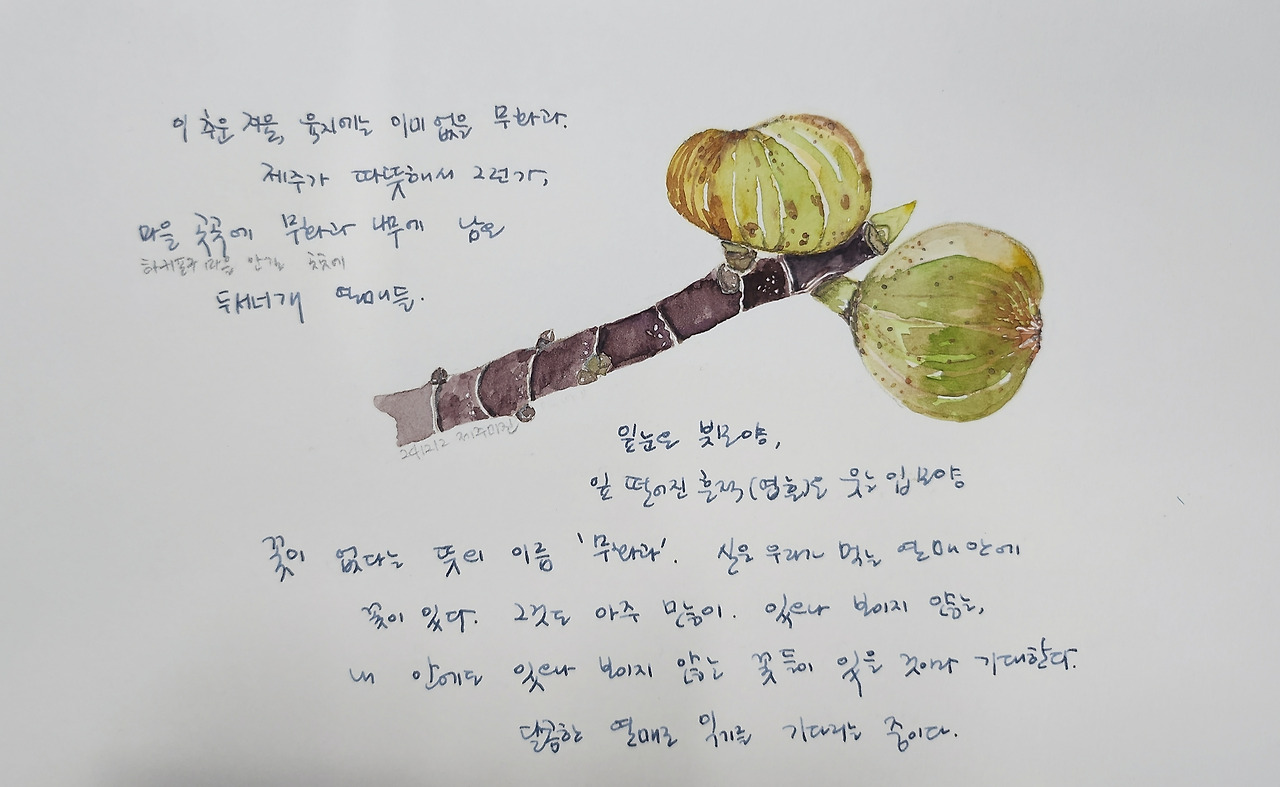 이 추운 겨울, 육지에는 이미 없을 무화과.
제주가 따뜻해서 그런가,
마을 곳곳에 무화과 나무에 남은
마을 안길 곳곳에
두서너개 열매들.
241212 제주미진
잎눈은 붓모양,
잎 떨어진 흔적(엽흔)은 웃는 입모양
꽃이 없다는 뜻의 이름 '무화과'. 실은 우리가 먹는 열매 안에
꽃이 있다. 그것도 아주 많이. 있으나 보이지 않는,
내 안에도 있으나 보이지 않는 꽃들이 있을 것이라 기대한다.
달콤한 열매로 익기를 기다리는 중이다.